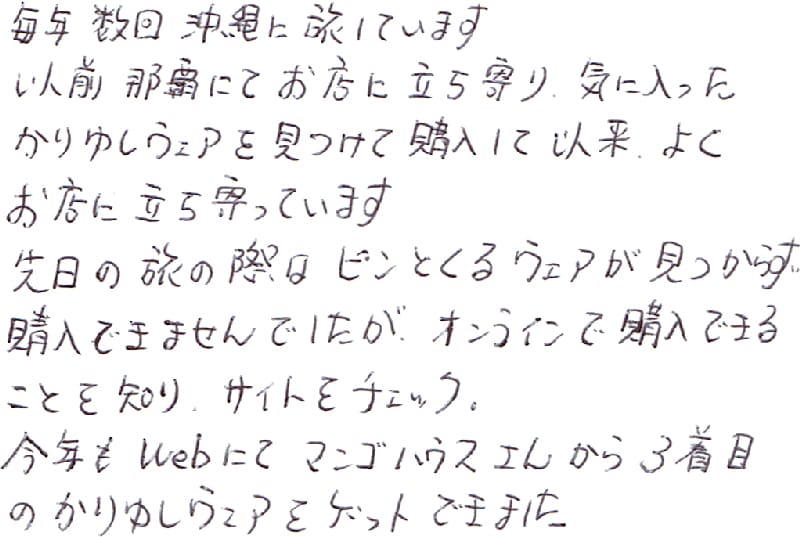 毎年 数回 沖縄に 旅しています
以前 那覇にて お店に 立ち寄り、気に入った
かりゆしウェアを 見つけて 購入して 以来、よく
お店に 立ち寄っています
先日の 旅の 際は ピンとくる ウェアが 見つからず、
購入できませんでしたが、オンラインで 購入できる
ことを 知り、サイトを チェック。
今年も Webにて マンゴハウスさんから 3着目
の かりゆしウェアを ゲット できました